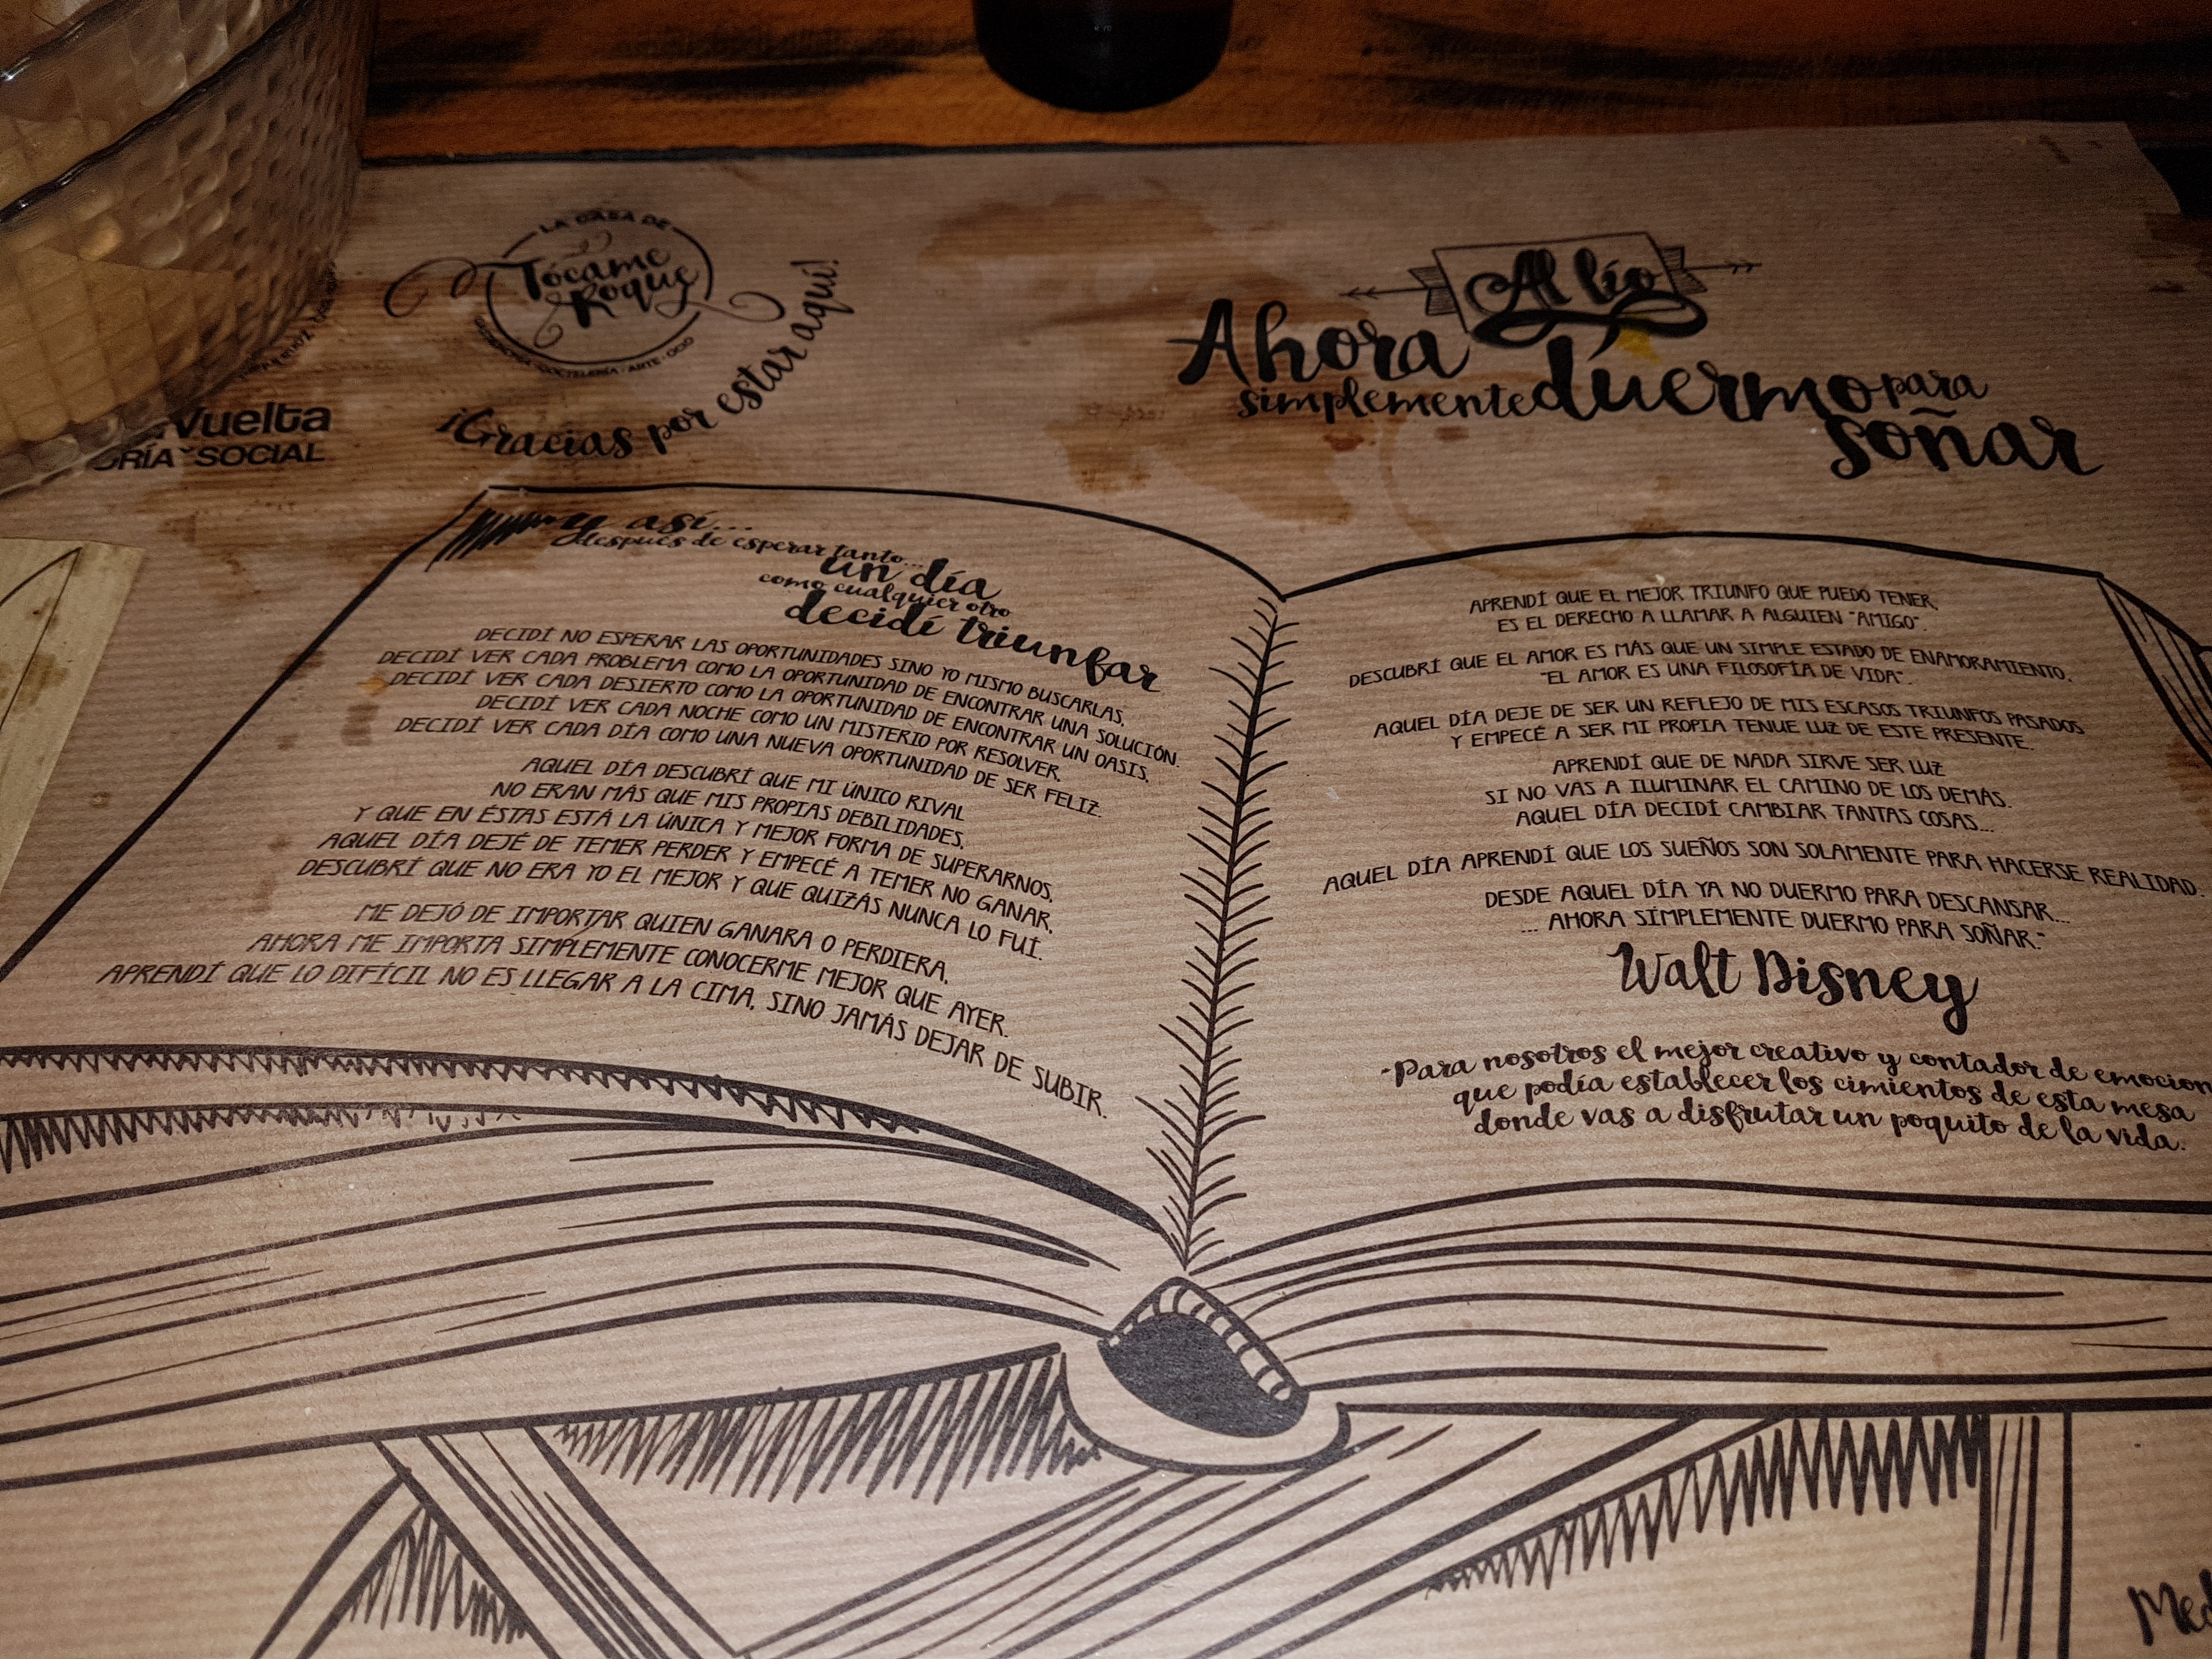 LA CASA DE
Tócame
Roque
COCTELERÍA · ARTE · OCIO
¡Gracias por estar aquí!
Vuelta
SOCIAL
Al lío
Ahora
simplemente duermo para
soñar
y así...
después de esperar tanto...
un día
como cualquier otro
decidí triunfar
DECIDÍ NO ESPERAR LAS OPORTUNIDADES SINO YO MISMO BUSCARLAS,
DECIDÍ VER CADA PROBLEMA COMO LA OPORTUNIDAD DE ENCONTRAR UNA SOLUCIÓN.
DECIDÍ VER CADA DESIERTO COMO LA OPORTUNIDAD DE ENCONTRAR UN OASIS,
DECIDÍ VER CADA NOCHE COMO UN MISTERIO POR RESOLVER,
DECIDÍ VER CADA DÍA COMO UNA NUEVA OPORTUNIDAD DE SER FELIZ.
AQUEL DÍA DESCUBRÍ QUE MI ÚNICO RIVAL
NO ERAN MÁS QUE MIS PROPIAS DEBILIDADES,
Y QUE EN ÉSTAS ESTÁ LA ÚNICA Y MEJOR FORMA DE SUPERARNOS,
AQUEL DÍA DEJÉ DE TEMER PERDER Y EMPECÉ A TEMER NO GANAR,
DESCUBRÍ QUE NO ERA YO EL MEJOR Y QUE QUIZÁS NUNCA LO FUÍ.
ME DEJÓ DE IMPORTAR QUIEN GANARA O PERDIERA,
AHORA ME IMPORTA SIMPLEMENTE CONOCERME MEJOR QUE AYER.
APRENDÍ QUE LO DIFÍCIL NO ES LLEGAR A LA CIMA, SINO JAMÁS DEJAR DE SUBIR.
APRENDÍ QUE EL MEJOR TRIUNFO QUE PUEDO TENER,
ES EL DERECHO A LLAMAR A ALGUIEN "AMIGO".
DESCUBRÍ QUE EL AMOR ES MÁS QUE UN SIMPLE ESTADO DE ENAMORAMIENTO,
"EL AMOR ES UNA FILOSOFÍA DE VIDA".
AQUEL DÍA DEJE DE SER UN REFLEJO DE MIS ESCASOS TRIUNFOS PASADOS
Y EMPECÉ A SER MI PROPIA TENUE LUZ DE ESTE PRESENTE.
APRENDÍ QUE DE NADA SIRVE SER LUZ
SI NO VAS A ILUMINAR EL CAMINO DE LOS DEMÁS.
AQUEL DÍA DECIDÍ CAMBIAR TANTAS COSAS...
AQUEL DÍA APRENDÍ QUE LOS SUEÑOS SON SOLAMENTE PARA HACERSE REALIDAD.
DESDE AQUEL DÍA YA NO DUERMO PARA DESCANSAR...
... AHORA SÍMPLEMENTE DUERMO PARA SOÑAR."
Walt Disney
-Para nosotros el mejor creativo y contador de emocion
que podía establecer los cimientos de esta mesa
donde vas a disfrutar un poquito de la vida.